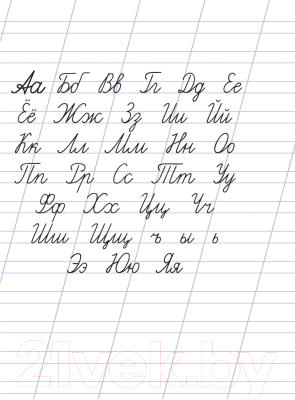 Аа Бб Вв Гг Дд Ее
Ёё Жж Зз Ии Йй
Кк Лл Мм Нн Оо
Пп Рр Сс Тт Уу
Фф Хх Цц Чч
Шш Щщ ъ ы ь
Ээ Юю Яя
21vek.by